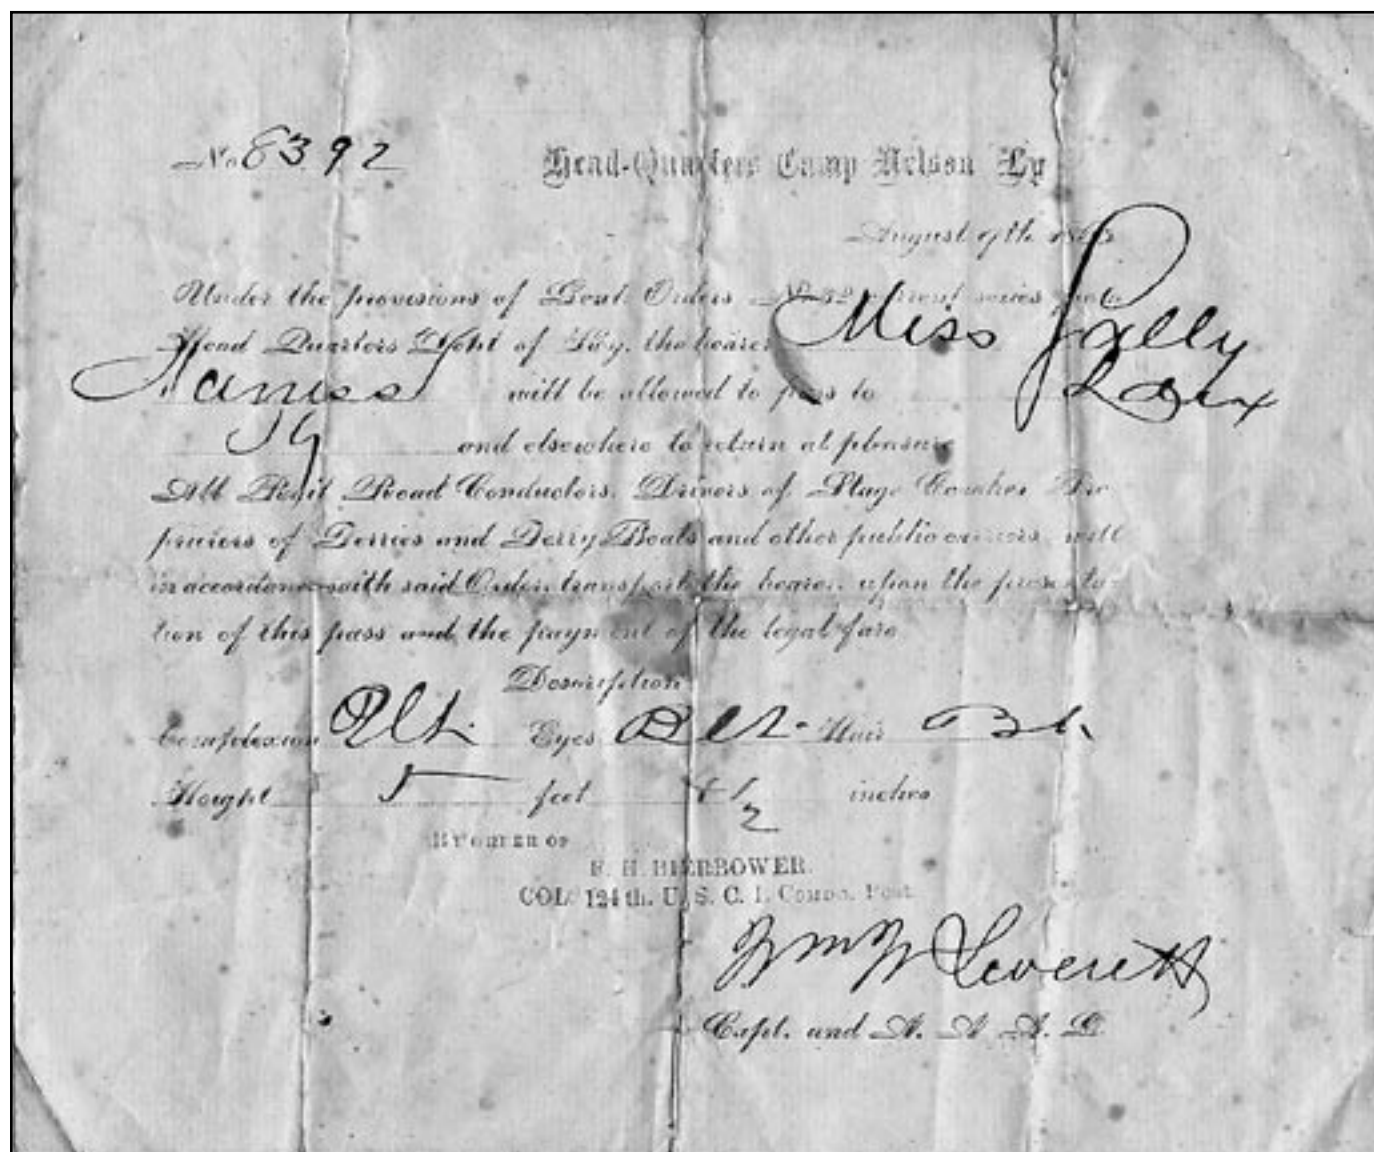 No 8392
Head-Quarters Camp Nelson Ky
August 9th 1865
Under the provisions of Genl. Orders No 32 current series from
Head Quarters Dpht of Ky. the bearer Miss Sally
will be allowed to pass to Lex
Ky and elsewhere to return at pleasure
All Rail Road Conductors, Drivers of Stage Coaches Pro
prieiors of Ferries and Ferry Boats and other public carriers, will
in accordance with said Order, transport the bearer, upon the presenta-
tion of this pass and the payment of the legal fare
Description
Complexion Eyes Hair
Height 5 feet 1/2 inches
BY ORDER OF
F. H. BIERBOWER.
COL. 124th. U. S. C. I. Comdg. Post
Wm W Leverett
Capt. and A. A. A. G.